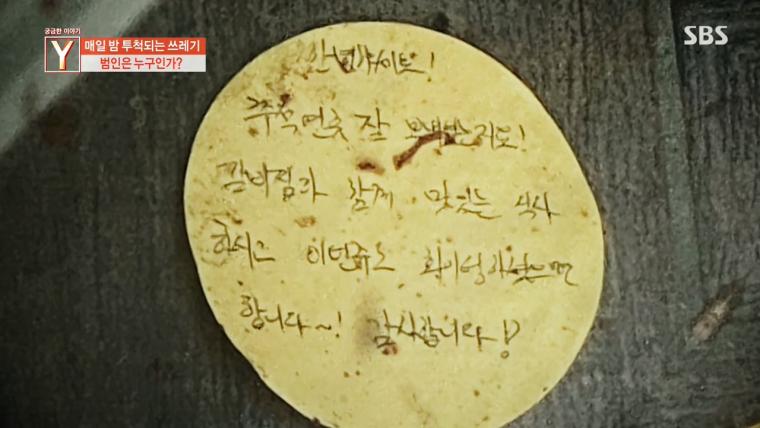 궁금한 이야기
Y
매일 밤 투척되는 쓰레기
범인은 누구인가?
SBS
안녕하세요!
추석연휴 잘 보내셨지요!
김바점과 함께 맛있는 식사
하시고 이번주도 화이팅하셨으면
합니다~! 감사합니다!